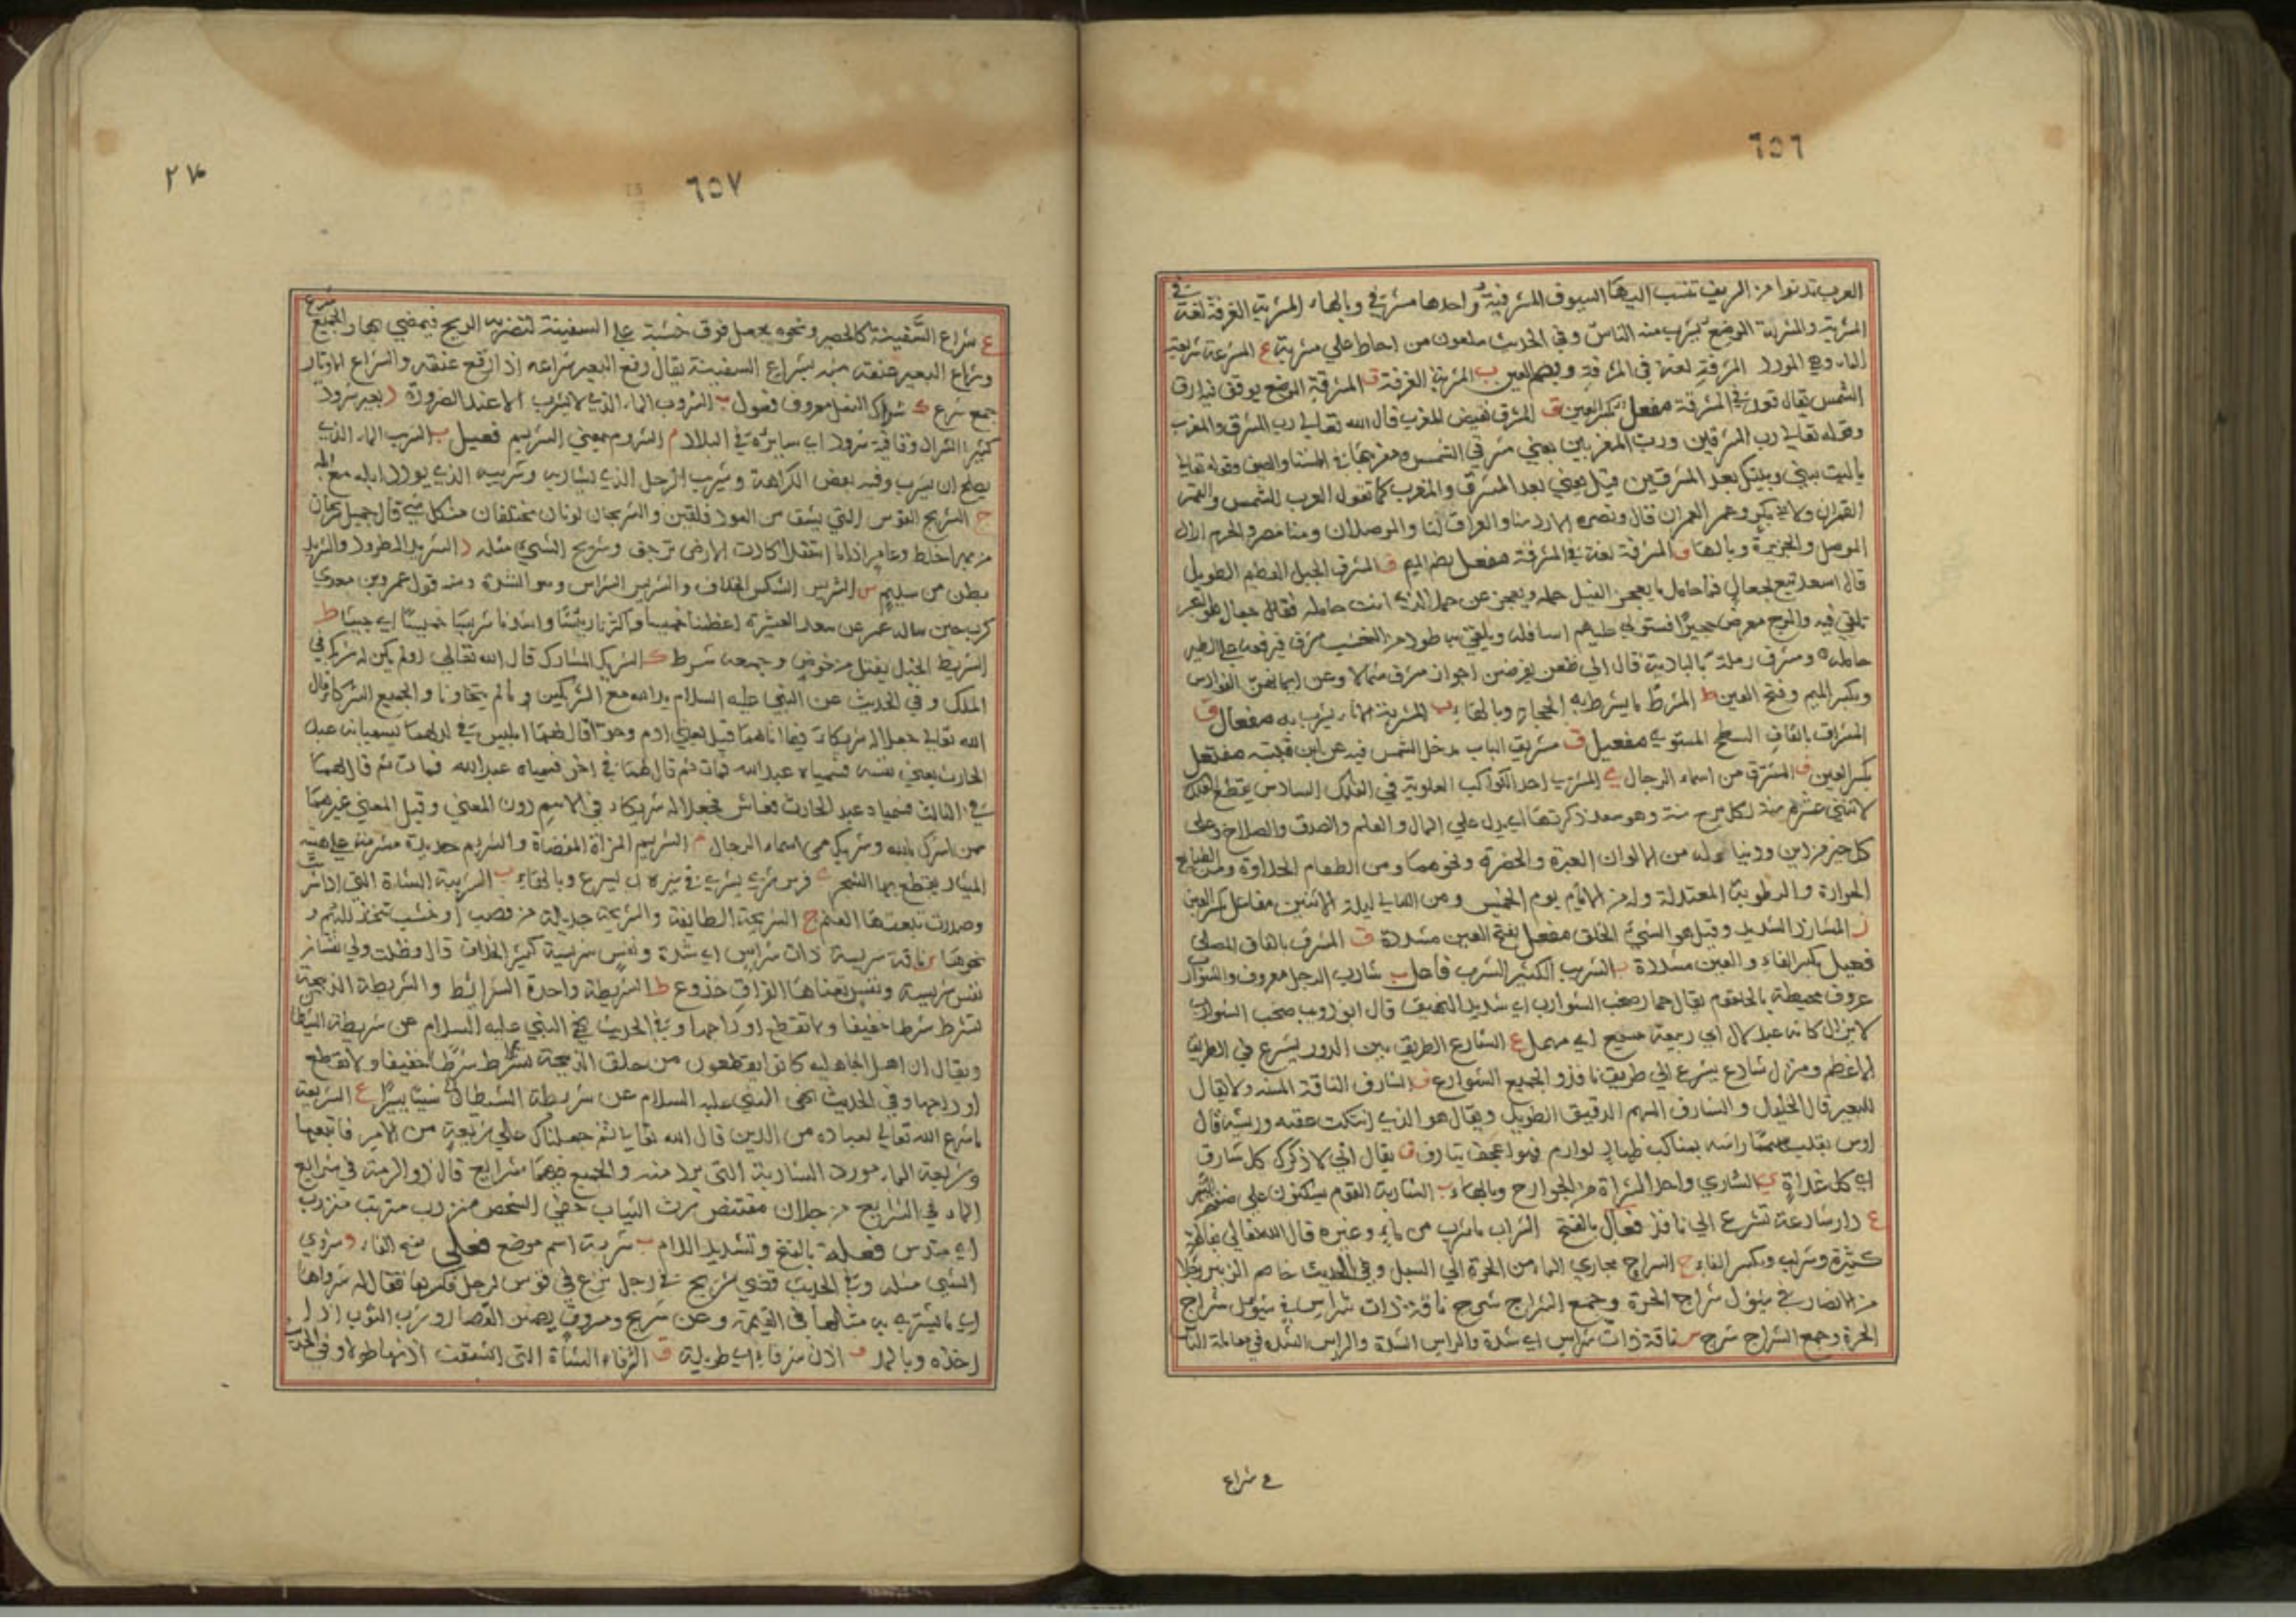 ٦٥٦
العرب تدنوا من الريف تنسب اليها السيوف المشرفية واحدها مشرفي وبالهاء المشربة الغرفة لغة في
المشربة والمشربة الموضع يشرب منه الناس وفي الحديث ملعون من احاط علي مشربة ع المشرعة شريعة
الماء وهي المورد المشرفة لغة في المشرفة وبضم العين ب المشربة الغرفة ق المشرقة الموضع يوقف فيه في
الشمس يقال قعد في المشرقة مفعل بكسر العين ق المشرق نقيض المغرب قال الله تعالي رب المشرق والمغرب
وقوله تعالي رب المشرقين ورب المغربين يعني مشرقي الشمس ومغربيها في الشتاء والصيف وقوله تعالي
يا ليت بيني وبينك بعد المشرقين قيل يعني بعد المشرق والمغرب كما تقول العرب للشمس والقمر
القمران ولابي بكر وعمر العمران قال ونصره الازد منا والعراق لنا والموصلان ومنا مصر والحرم اراد
الموصل والجزيرة وبالهاء ق المشرقة لغة في المشرقة مفعل بضم الميم ف المشرف الجبل العظيم الطويل
قال اسعد تبع
حامله ومشرف رملة بالبادية قال الي ظعن يقرضن اجواز مشرف شمالا وعن ايمانهن الفوارس
وبكسر الميم وفتح العين ط المشرط ما يشرط به الحجام وبالهاء ب المشربة اناء يشرب به مفعال ق
المشراق بالقاف السطح المستوي مفعيل ق مشريق الباب مدخل الشمس فيه عن ابن قتيبة مفتعل
بكسر العين ق المشترق من اسماء الرجال ي المشتري احد الكواكب العلوية في الفلك السادس يقطع الفلك
لاثنتي عشرة سنة لكل برج سنة وهو سعد ذكر نهاري يدل علي المال والعلم والصدق والصلاح وعلى
كل خير من دين ودنيا وله من الالوان الغبرة والخضرة ونحوهما ومن الطعام الحلاوة ومن الطبائع
الحرارة والرطوبة المعتدلة وله من الايام يوم الخميس ومن الليالي ليلة الاثنين مفاعل بكسر العين
ز المشارز الشديد وقيل هو السيئ الخلق مفعل بفتح العين مشددة ق المشرق بالقاف المصلى
فعيل بكسر الفاء والعين مشددة ب الشريب الكثير الشرب فاعل ب شارب الرجل معروف والشوارب
عروق محيطة بالحلقوم يقال حمار صخب الشوارب اي شديد النهيق قال ابو ذويب صخب الشوارب
لا يزال كانه عبد لال ابي ربيعة مسبع اي مهمل ع الشارع الطريق بين الدور يشرع في الطريق
الاعظم ومنزل شارع يشرع الي طريق نافذ والجميع الشوارع ف الشارف الناقة المسنة ولا يقال
للبعير قال الخليل والشارف السهم الدقيق الطويل ويقال هو الذي انتكث عقبه وريشه قال
اوس يقلب سهما راشه بمناكب ظهار لوام فهو اعجف شارف ق يقال اني لا ذكرك كل شارق
اي كل غداة ي الشاري واحد الشراة من الخوارج وبالهاء ب الشاربة القوم يسكنون علي ضفة النهر
ع دار شارعة تشرع الي نافذ فعال بالفتح الشراب ما شرب من ماء وغيره قال الله تعالي بفاكهة
كثيرة وشراب وبكسر الفاء ج الشراج مجاري الماء من الحرة الي السهل وفي الحديث خاصم الزبير رجلا
من الانصار في سيول شراج الحرة وجمع الشراج شرج ناقة ذات شراس في سيول شراج
الحرة وجمع الشراج شرج س ناقة ذات شراس اي شدة والشراس الشدة والشراس الشدة في معاملة الناس
ع شراع
٦٥٧
ع شراع السفينة كالحصير ونحوه يجعل فوق خشبة علي السفينة لتضربه الريح فيمضي بها والجميع شرع
وشراع البعير عنقه شبه بشراع السفينة يقال رفع البعير شراعه اذا رفع عنقه والشراع الاوتار
جمع شرع ك شراك النعل معروف فعول ب الشروب الماء الذي لا يشرب الا عند الضرورة د بعير شرود
كثير الشراد وقافية شرود اي سايرة في البلاد م الشروم بمعني الشريم فعيل ب الشريب الماء الذي
يصلح ان يشرب وفيه بعض الكراهة وشريب الرجل الذي يشاربه وشريبه الذي يورد ابله مع ابله
ج الشريج القوس التي يشق من العود فلقتين والشريجان لونان مختلفان من كل شي قال جميل شريجان
وشريج الشي مثله د الشريد المطرود والشريد
بطن من سليم س الشريس الشكس الخلاف والشريس الشراس وهو الشدة ومنه قول عمرو بن معدي
كرب حين ساله عمر عن سعد العشيرة اعظمنا خميسا واكثرنا رئيسا واشدنا شريسا خميسا اي جيشا ط
الشريط الحبل يفتل من خوص وجمعه شرط ك الشريك المشارك قال الله تعالي ولم يكن له شريك في
الملك وفي الحديث عن النبي عليه السلام يد الله مع الشريكين ما لم يتخاونا والجميع الشركاء قال
الله تعالي جعلا له شركاء فيما اتاهما قيل يعني ادم وحوا قال لهما ابليس في ولدهما يسميانه عبد
الحارث يعني نفسه فسمياه عبد الله فمات ثم قال لهما في اخر فسمياه عبد الله فمات ثم قال لهما
في الثالث فسمياه عبد الحارث فعاش فجعلا له شريكا في الاسم دون المعني وقيل المعني غيرهما
ممن اشرك بالله وشريك من اسماء الرجال م الشريم المراة المفضاة والشريم حديدة مشرمة علي هيئة
المنشار يقطع بها الشجر ي فرس شري يشري في سيره اي يسرع وبالهاء ب الشريبة الشاة التي اذا شربت
وصدرت تبعتها الغنم ج الشريجة الطايفة والشريجة جديلة من قصب او خشب تتخذ للحمام و
نحوها س ناقة شريسة ذات شراس اي شدة ونفس شريسة كثيرة الخلاف قال وظلت ولي نفسان
نفس شريسة ونفس تعناها الفراق جذوع ط الشريطة واحدة الشرائط والشريطة الذبيحة
تشرط شرطا خفيفا ولا تقطع اوداجها وفي الحديث نهي النبي عليه السلام عن شريطة الشيطان
ويقال ان اهل الجاهلية كانوا يقطعون من حلق الذبيحة شرطا خفيفا ولا تقطع
اوداجها وفي الحديث نهى النبي عليه السلام عن شريطة الشيطان ع الشريعة
ما شرع الله تعالي لعباده من الدين قال الله تعالي ثم جعلناك علي شريعة من الامر فاتبعها
وشريعة الماء مورد الشاربة التي ترد منه والجميع فيهما شرايع قال ذو الرمة في شرايع
الماء وفي الشرايع من جلان مقتنص رث الثياب خفي الشخص منزرب
فعلة بالفتح وتشديد اللام ب شربة اسم موضع فعلى بفتح الفاء و شروي
الشي مثله وفي الحديث قضي شريح في رجل نزع في قوس لرجل فكسرها فقال له شرواها
اي ما يشتري به مثلها في القيمة وعن شريح ومسروق يضمن القصار شروي الثوب اذا
اخذه وبالمد ف اذن شرفاء اي طويلة ق الشرقاء الشاة التي انشقت اذنها طولا وفي الحديث